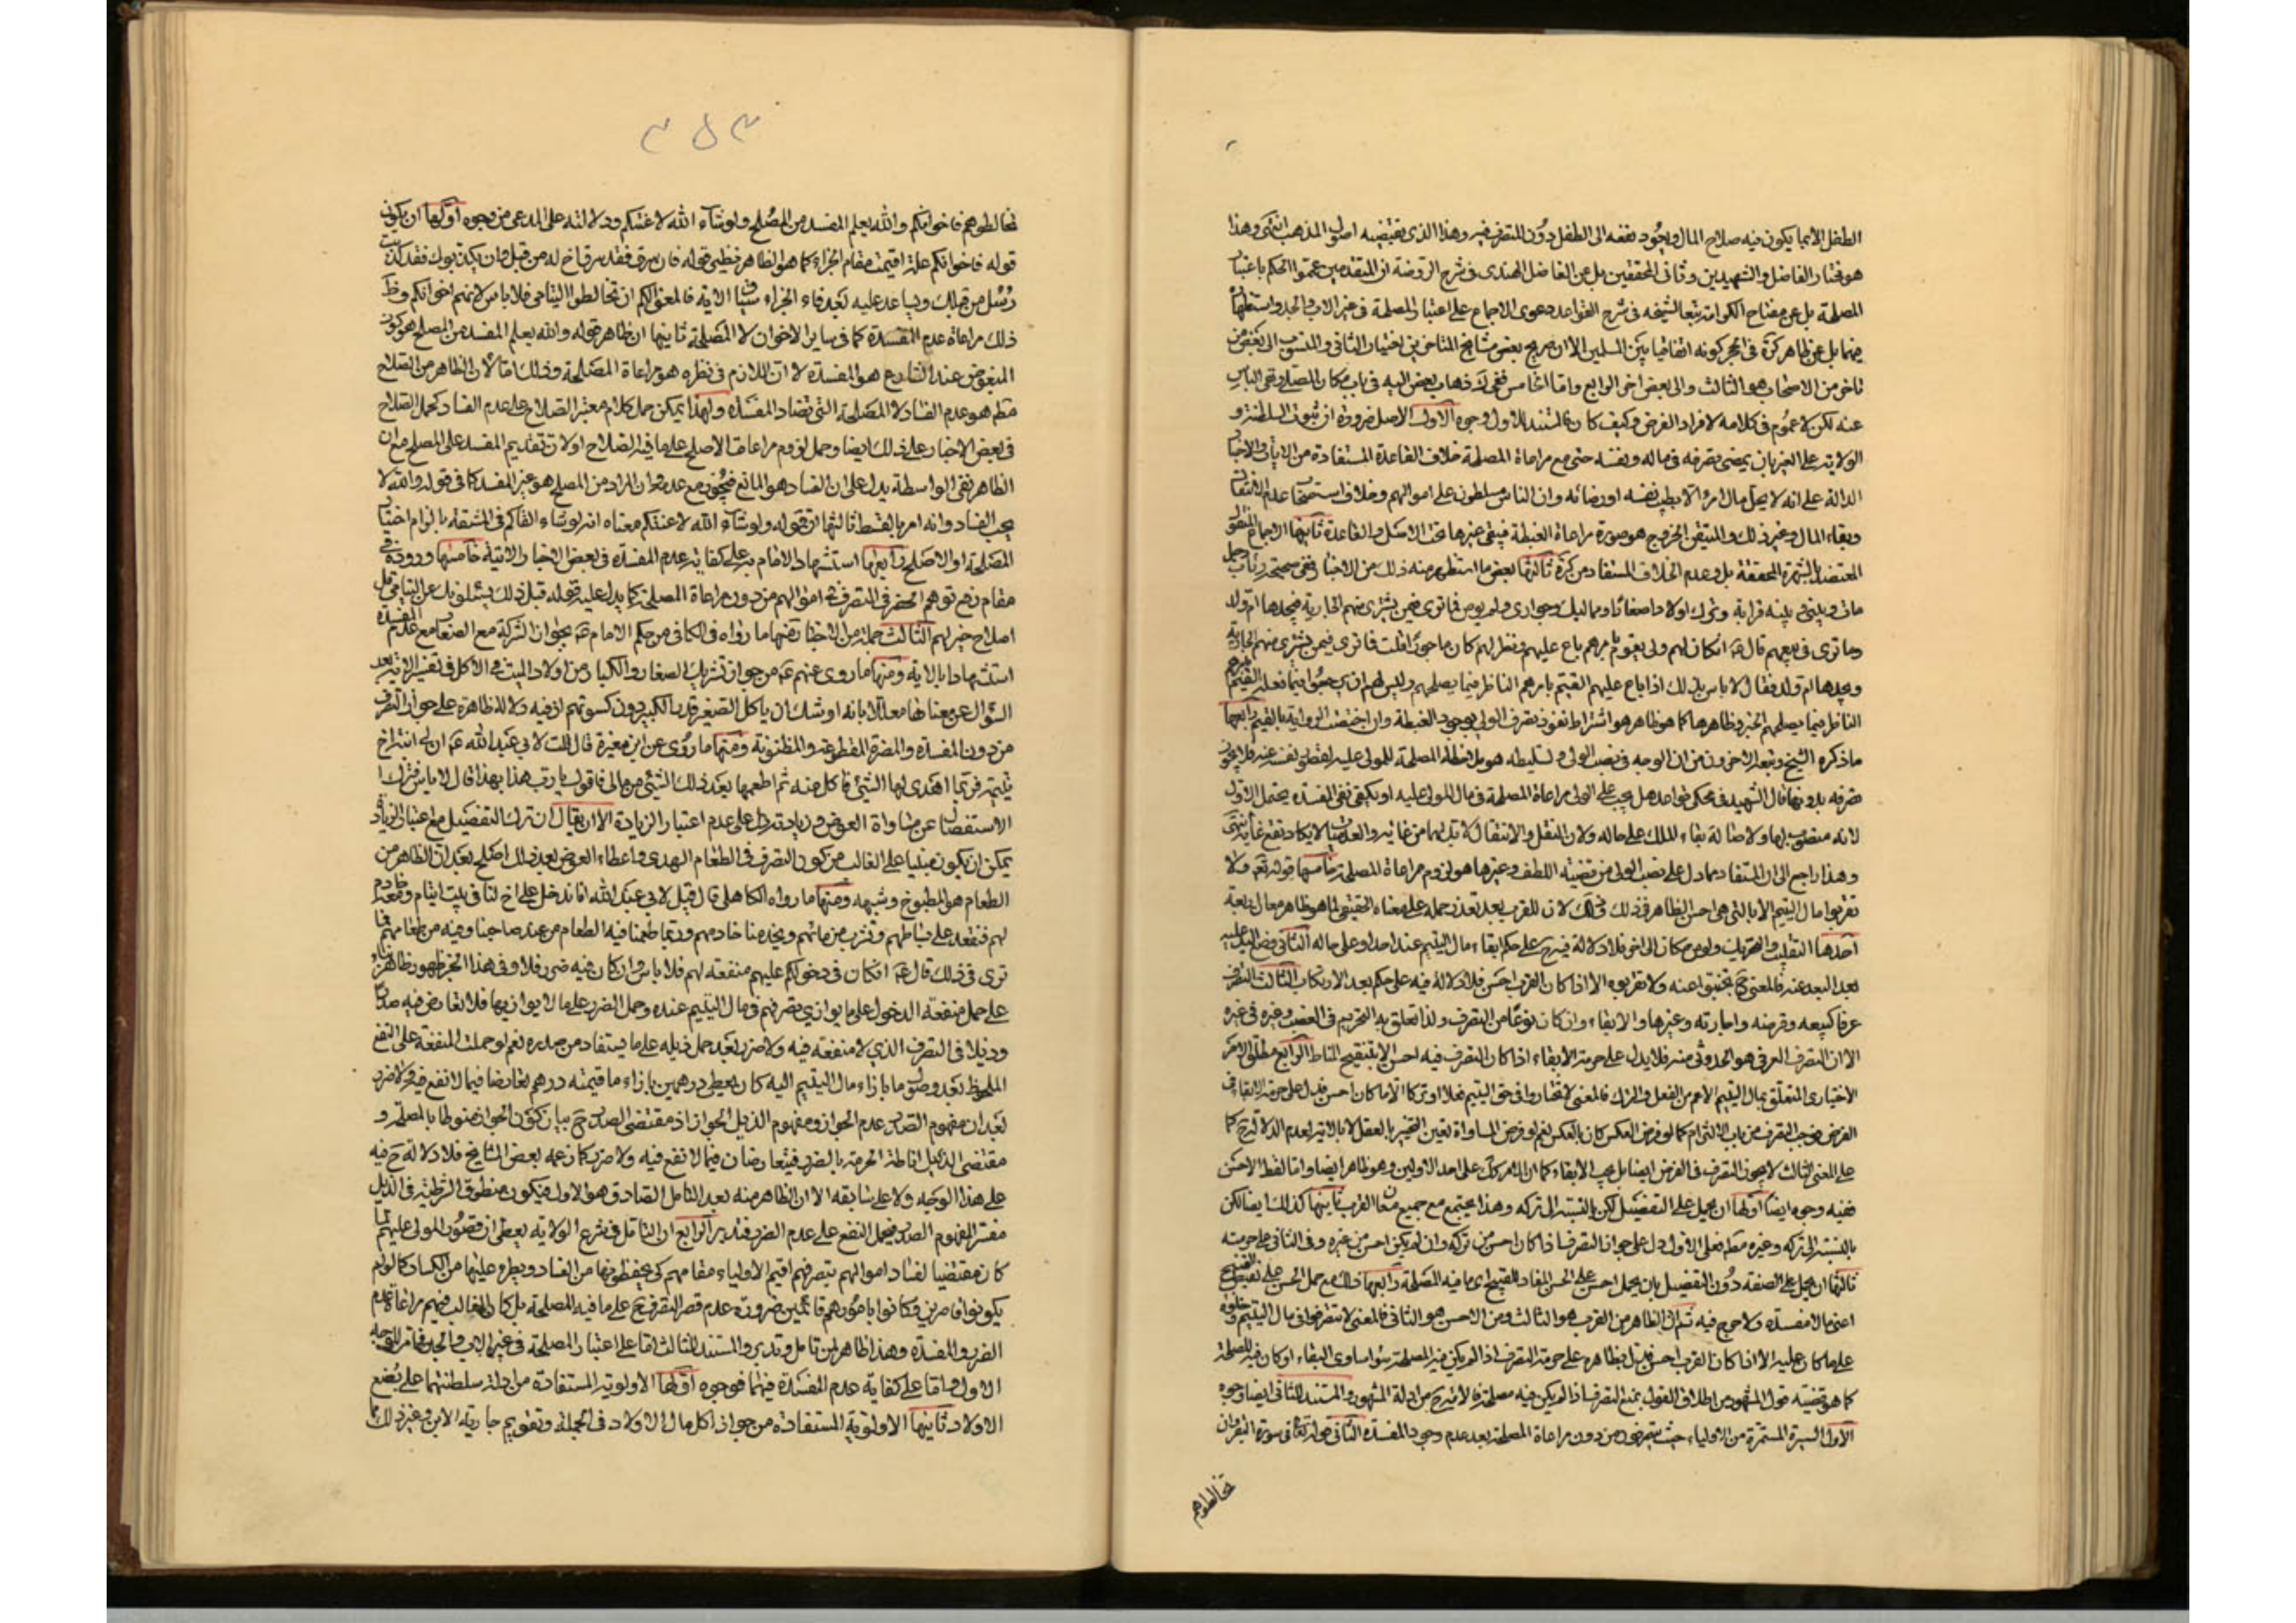 الطفل الا بما يكون فيه صلاح المال ويعود نفعه الى الطفل دون المتصرف فيه وهذا الذى يقتضيه اصول المذهب انتهى وهذا
هو مختار الفاضل والشهيدين وثانى المحققين بل عن الفاضل الهندى فى شرح الروضة ان المتقدمين عمموا الحكم باعتبار
المصلحة بل عن مفتاح الكرامة تبعا لشيخه فى شرح القواعد دعوى الاجماع على اعتبار المصلحة فى غير الاب والجد واستظهار
منهما بل عن ظاهر كرة فى الحجر كونه اتفاقيا بين المسلمين الا ان صريح بعض مشايخ المتاخرين اختيار الثانى والمنسوب الى بعض من
تاخر من الاصحاب هو الثالث والى بعض اخر الرابع واما الخامس ففى لك ذهاب بعض اليه فى باب مكان المصلى وفى الناس
عنه لكن لا عموم فى كلامه لافراد الفرض وكيف كان فالمستند للاول وجوه الاول الاصل ضرورة ان ثبوت السلطنة و
الولاية على الغير بان يمضى تصرفه فى ماله ونفسه حتى مع مراعاة المصلحة خلاف القاعدة المستفادة من الايات والاخبار
الدالة على انه لا يحل مال امرء الا بطيب نفسه او رضائه وان الناس مسلطون على اموالهم وخلاف استصحاب عدم الانتقال
وبقاء المال وغير ذلك والمتيقن الخروج هو صورة مراعاة الغبطة فيبقى غيرها تحت الاصل والقاعدة ثانيها الاجماع المنقول
المعتضد بالشهرة المحققة بل وعدم الخلاف المستفاد من كرة ثالثها بعض ما استظهر منه ذلك من الاخبار ففى صحيحة رئاب رجل
مات وبينى وبينه قرابة وترك اولادا صغارا ومماليك وجوارى ولم يوص فما ترى فيمن يشترى منهم الجارية فيتخذها ام ولد
وما ترى فى بيعهم قال ع ان كان لهم ولى يقوم بامرهم باع عليهم ونظر لهم كان ماجورا قلت فما ترى فيمن يشترى منهم الجارية
ويتخذها ام ولد فقال لا باس بذلك اذا باع عليهم القيم بامرهم الناظر فيما يصلحهم وليس لهم ان يرجعوا فيما فعله القيم بامرهم
الناظر فيما يصلحهم الخبر وظاهرها كما هو ظاهر هو اشتراط نفوذ تصرف الولى بوجود الغبطة وان اختصت الرواية بالقيم رابعها
ماذكره الشيخ وتبعه الاخرون من ان الوجه فى نصب الولى وتسليطه هو ملاحظة المصلحة للمولى عليه لقصور نفسه عنه فلا يجوز
تصرفه بدونها قال الشهيد فى محكى قواعده هل يجب على الولى مراعاة المصلحة فى مال المولى عليه او يكفى نفى المفسدة يحتمل الاول
لانه منصوب لها ولاصالة بقاء الملك على حاله ولان النقل والانتقال لا بد لهما من غاية والعدميات لا يكاد تقع غاية انتهى
وهذا راجع الى ان المستفاد مما دل على نصب الولى من قضية اللطف وغيرها هو لزوم مراعاة المصلحة خامسها قوله تعم ولا
تقربوا مال اليتيم الا بالتى هى احسن الظاهر فى ذلك وذلك لان للقرب بعد تعذر حمله على معناه الحقيقى كما هو ظاهر معان اربعة
احدها التقليب والتحريك ولو من مكان الى اخر فلا دلالة فيه ح على حكم ابقاء مال اليتيم عند احد او على حاله الثانى وضع اليد عليه
بعد البعد عنه فالمعنى ح تجنبوا عنه ولا تقربوه الا اذا كان القرب احسن فلا دلالة فيه على حكم بعد الارتكاب الثالث التصرف
عرفا كبيعه وقرضه واجارته وغيرها والابقاء وان كان نوعا من التصرف ولذا تعلق به التحريم فى الغصب وغيره فى غيره
الا ان التصرف العرفى هو الحدوثى منه فلا يدل على حرمة الابقاء اذا كان التصرف فيه احسن الا بتنقيح المناط الرابع مطلق الامر
الاختيارى المتعلق بمال اليتيم الاعم من الفعل والترك فالمعنى لا تختاروا فى حق اليتيم فعلا او تركا الا ما كان احسن فيدل على حرمة الابقاء فى
الفرض ووجب التصرف من باب الالتزام كما لو فرض العكس كان بالعكس نعم لو فرض المساواة تعين التخيير بالعقل لا بالاية لعدم الدلالة ح كما
على المعنى الثالث لا يجوز التصرف فى الفرض ايضا بل يجب الابقاء كما ان الامر كك على احد الاولين وهو ظاهر ايضا واما لفظ الاحسن
ففيه وجوه ايضا اولها ان يحمل على التفضيل لكن بالنسبة الى تركه وهذا يجتمع مع جميع معانى القرب ثانيها كذلك ايضا لكن
بالنسبة الى تركه وغيره مطم فعلى الاول دل على جواز التصرف اذا كان احسن من تركه وان لم يكن احسن من غيره وفى الثانى على حرمته
ثالثها ان يحمل على الصفة دون التفضيل بان يحمل احسن على الحسن المضاد للقبيح اى ما فيه المصلحة رابعها ذلك مع حمل الحسن على نقيض القبيح
اعنى ما لا مفسدة ولا حرج فيه ثم ان الظاهر من القرب هو الثالث ومن الاحسن هو الثانى فالمعنى لا تتصرفوا فى مال اليتيم وخلوه
على ما كان عليه الا اذا كان القرب احسن فيدل بظاهره على حرمة التصرف اذا لم يكن فيه المصلحة سواء ساوى البقاء او كان فيه المصلحة
كما هو قضية قول المشهور من اطلاق القول بمنع التصرف اذا لم يكن فيه مصلحة فالاية ح من ادلة المشهور والمستند للثانى ايضا وجوه
الاول السيرة المستمرة من الاولياء حيث يتصرفون من دون مراعاة المصلحة بعد عدم وجود المفسدة الثانى قوله تعالى فى سورة البقرة وان
تخالطوهم
٣٥٣
تخالطوهم فاخوانكم والله يعلم المفسد من المصلح ولو شاء الله لاعنتكم ودلالته على المدعى من وجوه اولها ان يكون
قوله فاخوانكم علة اقيمت مقام الجزاء كما هو الظاهر فنظير قوله فان يسرق فقد سرق اخ له من قبل وان يكذبوك فقد كذبت
رسل من قبلك ويساعد عليه بعد فاء الجزاء سياق الاية فالمعنى انكم ان تخالطوا اليتامى فلا باس لانهم اخوانكم وظ
ذلك مراعاة عدم المفسدة كما فى ساير الاخوان لا المصلحة ثانيها ان ظاهر قوله والله يعلم المفسد من المصلح هو كون
المبغوض عند الشارع هو المفسدة لا ان اللازم فى نظره هو مراعاة المصلحة وذلك اما لان الظاهر من الصلاح
مطم هو عدم الفساد لا المصلحة التى تضاد المفسدة ولهذا يمكن حمل كلام معتبر الصلاح على عدم الفساد كحمل الصلاح
فى بعض الاخبار على ذلك ايضا وحمل لزوم مراعاة الاصلح على ما فيه الصلاح او لان تقديم المفسد على المصلح مع ان
الظاهر نفى الواسطة يدل على ان الفساد هو المانع فيجوز مع عدمه وان المراد من المصلح هو غير المفسد كما فى قوله والله لا
يحب الفساد وانه امر بالقسط ثالثها ان قوله ولو شاء الله لاعنتكم معناه انه لو شاء القاكم فى المشقة بالزام اختيار
المصلحة او الاصلح رابعها استشهاد الامام به على كفاية عدم المفسدة فى بعض الاخبار الاتية خامسها وروده فى
مقام دفع توهم الحضر فى التصرف فى اموالهم من دون مراعاة المصلحة كما يدل عليه قوله قبل ذلك يسئلونك عن اليتامى قل
اصلاح خير لهم الثالث جملة من الاخبار منها ما رواه فى الكافى من حكم الامام ع بجواز الشركة مع الصغار مع عدم المفسدة
استشهادا بالاية ومنها ما روى عنهم ع من جواز تشريك الصغار والكبار من اولاد الميت فى الاكل فى تفسير الاية بعد
السؤال عن معناها معللا بانه اوشك ان ياكل الصغير قدر الكبير دون كسوتهم اذ فيه دلالة ظاهرة على جواز التصرف
من دون المفسدة والمضرة المقطوعة والمظنونة ومنها ما روى عن ابن مغيرة قال قلت لابى عبد الله ع ان لى ابنة اخ
يتيمة فربما اهدى لها الشئ فاكل منه ثم اطعمها بعد ذلك الشئ من مالى فاقول يا رب هذا بهذا قال لا باس فترك
الاستفصال عن مساواة العوض وزيادته يدل على عدم اعتبار الزيادة الا ان يقال ان ترك التفصيل مع اعتبار الزيادة
يمكن ان يكون مبنيا على الغالب من كون التصرف فى الطعام المهدى واعطاء العوض بعد ذلك اصلح بعد ان الظاهر من
الطعام هو المطبوخ وشبهه ومنها ما رواه الكاهلى قال قيل لابى عبد الله انا ندخل على اخ لنا فى بيت ايتام ومعهم خادم
لهم فنقعد على بساطهم ونشرب من مائهم ويخدمنا خادمهم وربما طعمنا فيه الطعام من عند صاحبنا وفيه من طعامهم فما
ترى فى ذلك قال ع ان كان فى دخولكم عليهم منفعة لهم فلا باس وان كان فيه ضرر فلا وفى هذا الخبر ظهور ظاهر بناء
على حمل منفعة الدخول على ما يوازى تصرفهم فى مال اليتيم عنده وحمل الضرر على ما لا يوازيها فلا تعارض فيه صدرا
وذيلا فى التصرف الذى لا منفعة فيه ولا ضرر بعد حمل ذيله على ما يستفاد من صدره نعم لو حملت المنفعة على النفع
الملحوظ بعد وصول ما بازاء مال اليتيم اليه كان يعطى درهمين بازاء ما قيمته درهم تعارضا فيما لا نفع فيه ولا ضرر
بعد ان مفهوم الصدر عدم الجواز ومفهوم الذيل الجواز اذ مقتضى الصدر ح بيان كون الجواز منوطا بالمصلحة و
مقتضى الذيل اناطة الحرمة بالضرر فيتعارضان فيما لا نفع فيه ولا ضرر كما زعمه بعض المشايخ فلا دلالة ح فيه
على هذا الوجه ولا على سابقه الا ان الظاهر منه بعد التامل الصادق هو الاول فيكون منطوق الشرطية فى الذيل
مفسرا لمفهوم الصدر فيحمل النفع على عدم الضرر فتدبر الرابع ان التامل فى شرع الولاية يعطى ان قصور المولى عليهم لما
كان مقتضيا لفساد اموالهم بتصرفهم اقيم الاولياء مقامهم كى يحفظونها من الفساد ويطرء عليها من الكساد كما لو لم
يكونوا قاصرين فكانوا بامورهم قائمين ضرورة عدم قصر التصرف ح على ما فيه المصلحة بل كان الغالب فيهم مراعاة عدم
الضرر والمفسدة وهذا ظاهر لمن تامل وتدبر والمستند للثالث اما على اعتبار المصلحة فى غير الاب والجد فما مر للوجه
الاول واما على كفاية عدم المفسدة فيهما فوجوه اولها الاولوية المستفادة من ادلة سلطنتهما على بضع
الاولاد ثانيها الاولوية المستفادة من جواز اكل مال الاولاد فى الجملة وتقويم جارية الابن وغير ذلك مما